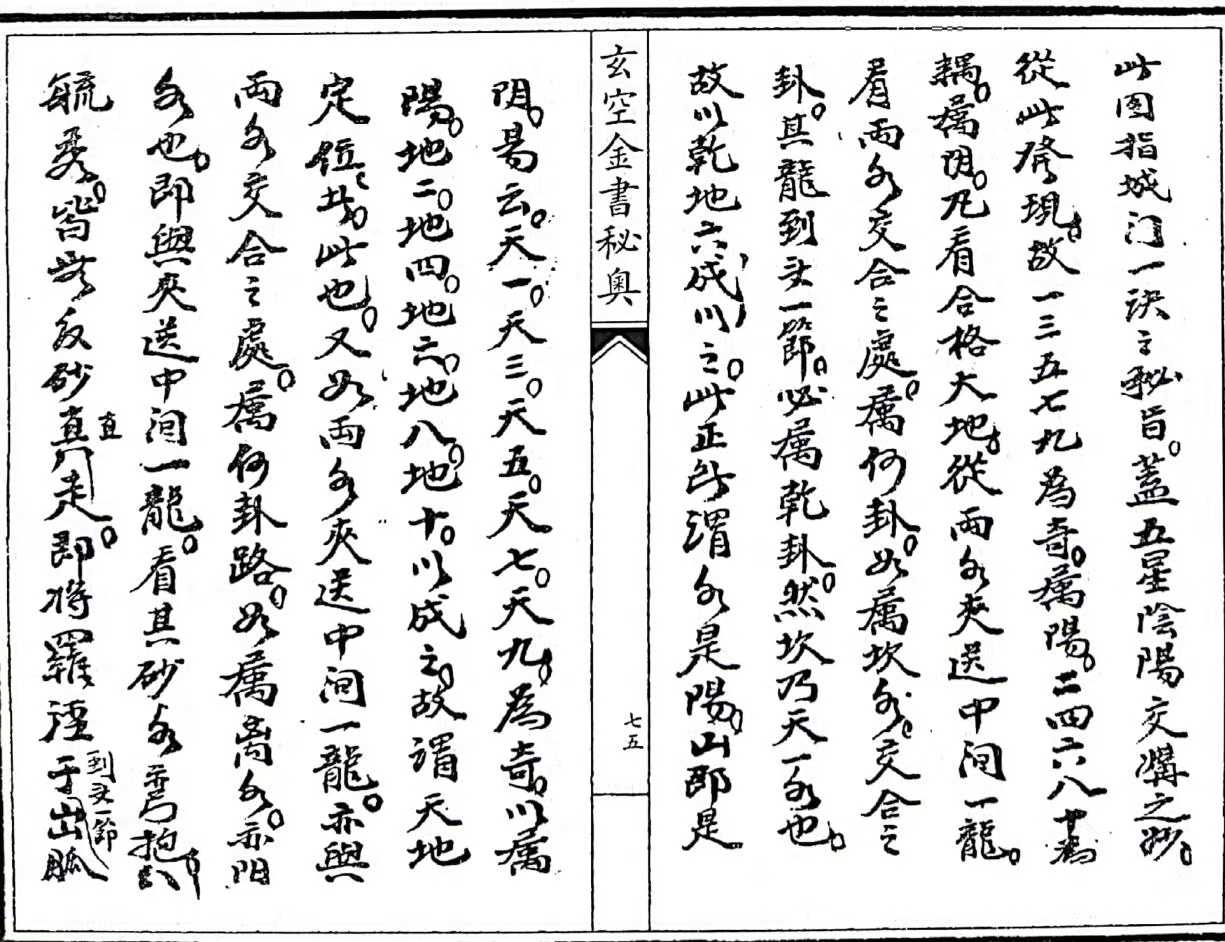 此图指城门一诀之秘旨。蓋五星陰陽交媾之妙。
從此發現。故一三五七九為奇。属陽。二四六八十為
耦。属阴。凡看合格大地。從两水夾送中间一龍。
看两水交合之處。属何卦。如属坎水。交合之
卦。其龍到头一節。必属乾卦。然坎乃天一水也。
故以乾地六成以之。此正所謂水是陽。山即是
玄空金書秘奥
七五
阴。易云。天一。天三。天五。天七。天九。為奇。以属
陽。地二。地四。地六。地八。地十。以成之。故謂天地
定位 此也。又如两水夾送中间一龍。亦與
两水交合之處。属何卦路。如属离水。亦阳
水也。即與夾送中间一龍。看其砂水弯抱
毓秀。皆 反砂直走。即将羅經于到头一節出脈